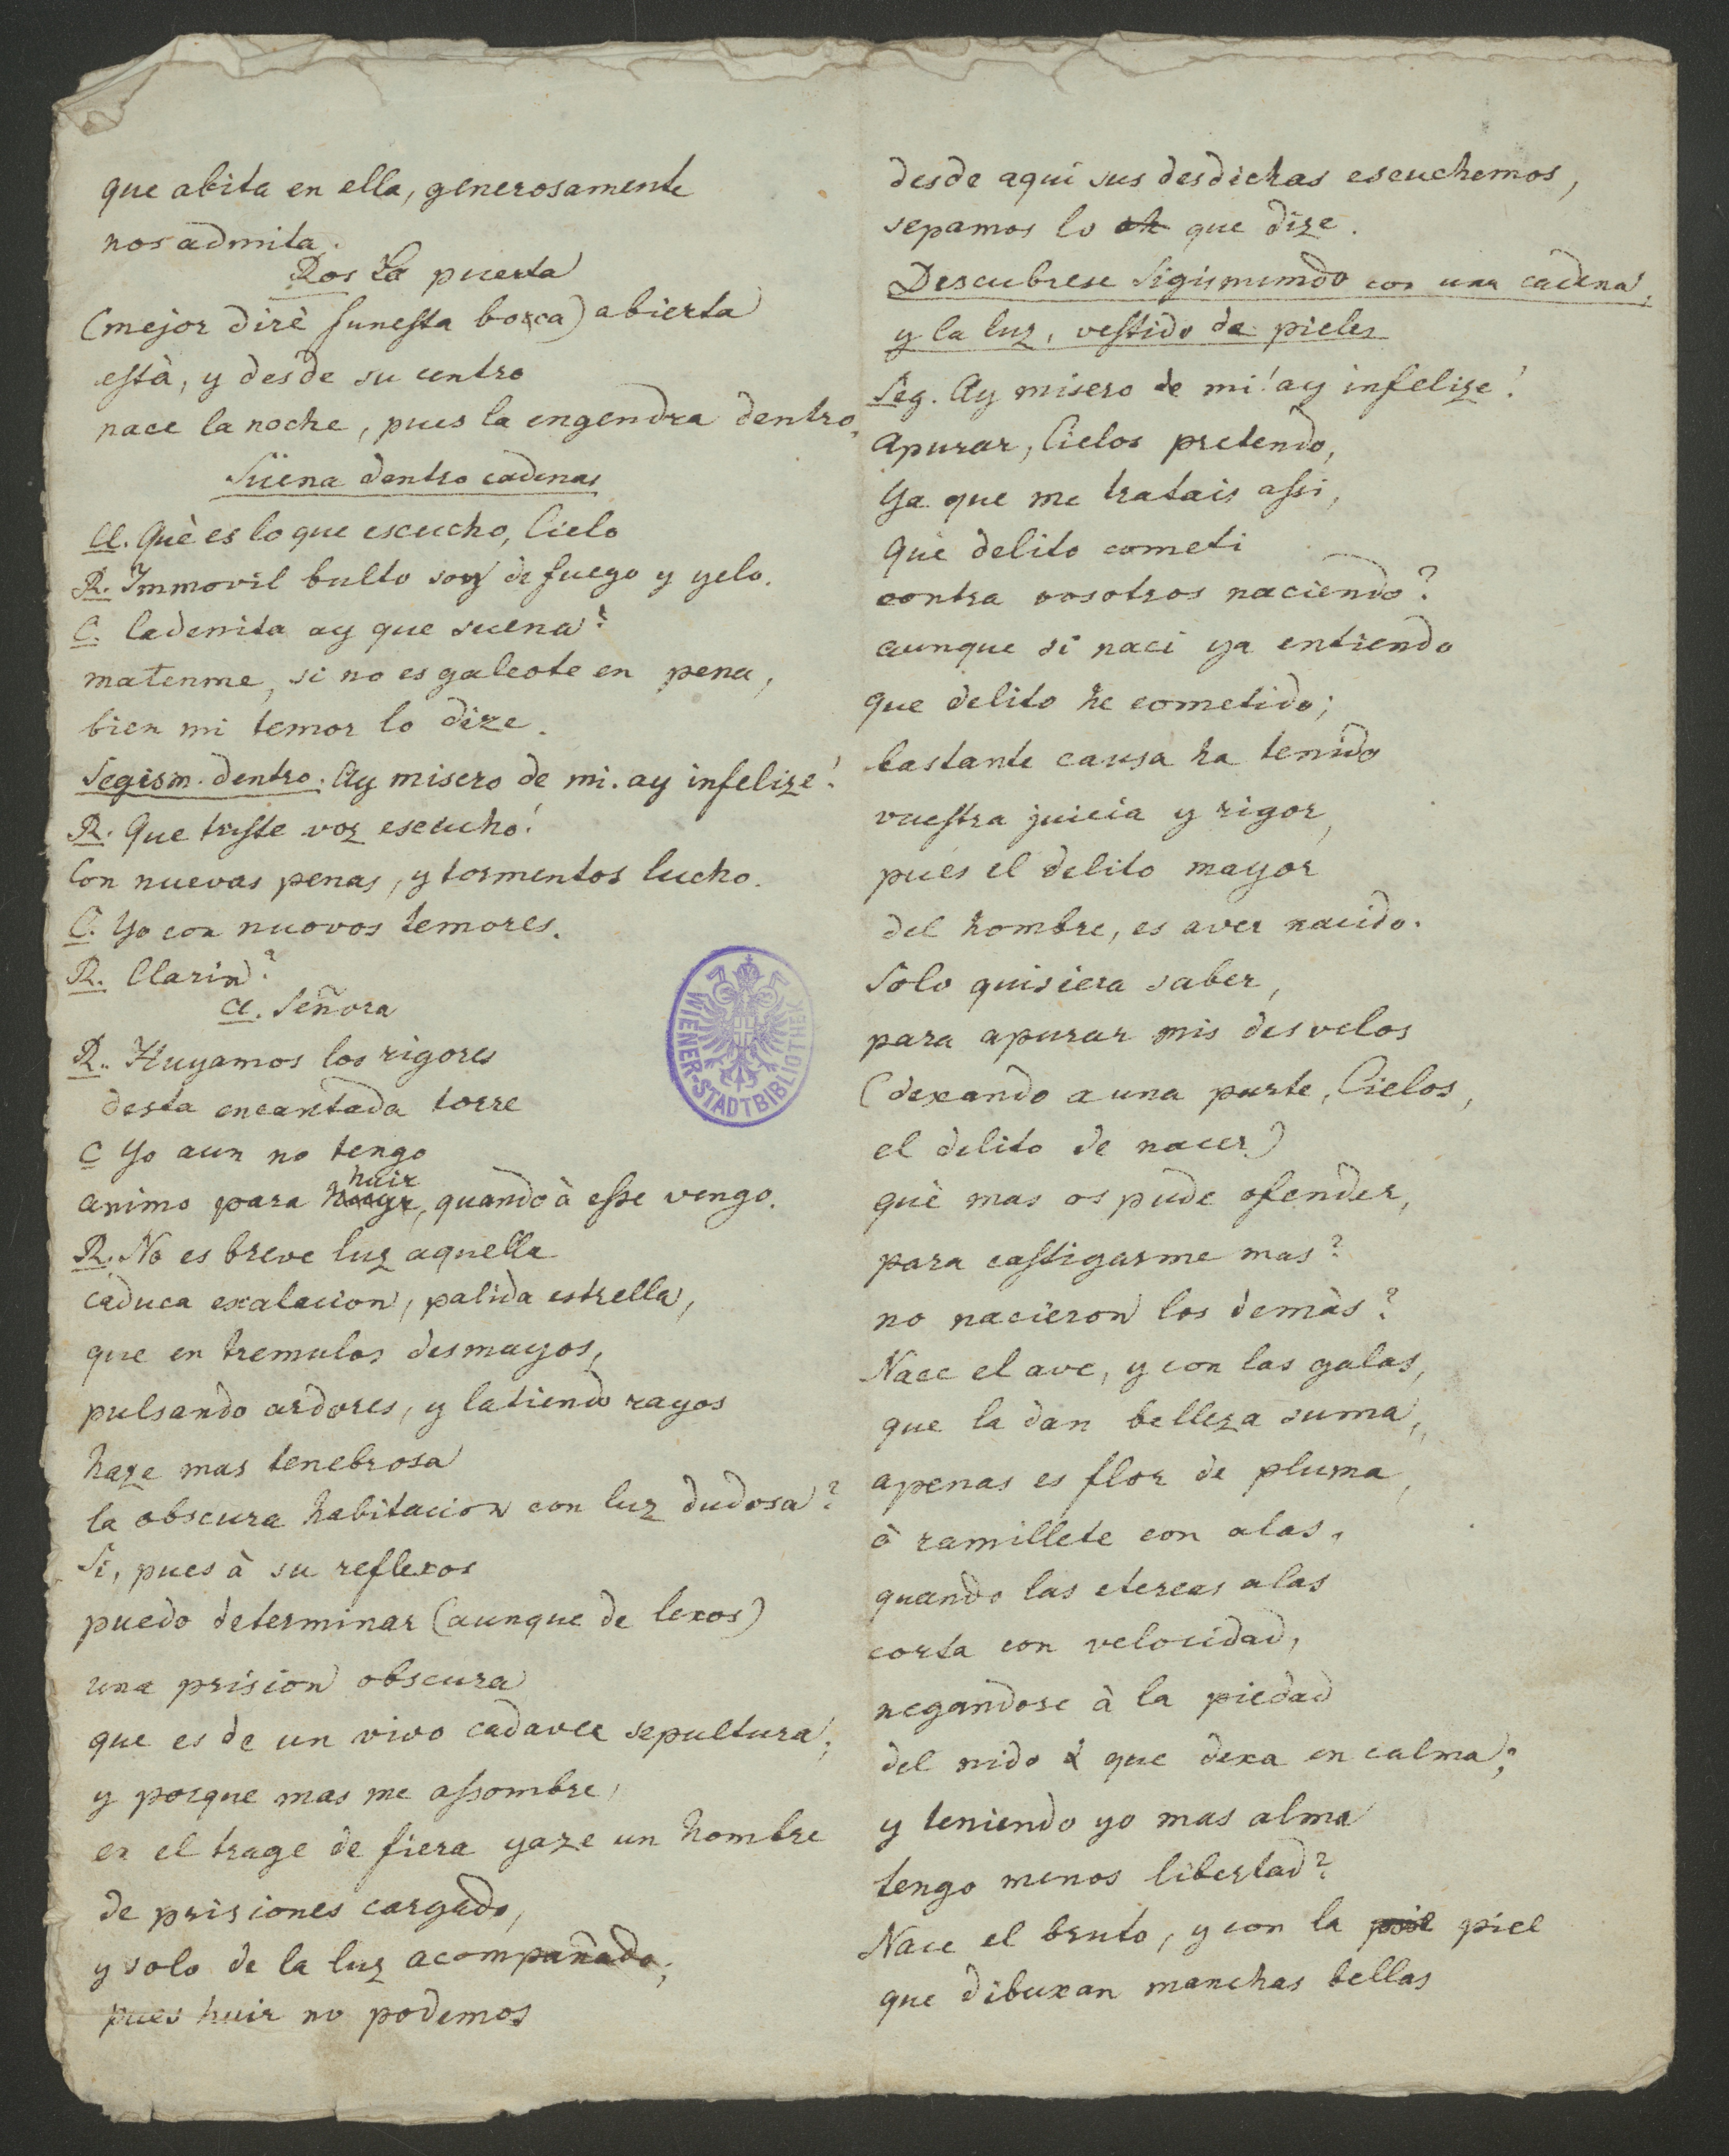 que abita en ella, generosamente
nos admita.
Ros La puerta
(mejor dirè funesta bocca) abierta
està, y desde su centro
nace la noche, pues la engendra dentro,
Süena dentro cadenas
Cl. Què es lo que escucho, Cielo
R. Immovil bulto soy de fuego y yelo.
C. Cadenita ay que suena?
matenme, si no es galeote en pena,
bien mi temor lo dize.
Segism. dentro. Ay misero de mi. ay infelize!
R. Que triste voz escucho!
Con nuevas penas, y tormentos lucho.
C. Yo con nuovos temores.
R. Clarin?
Cl. Señora
R. Huyamos los rigores
desta encantada torre
C Yo aun no tengo
huir
animo para huyr, quando à esse vengo.
R. No es breve luz aquella
caduca exalacion, palida estrella,
que en tremulos desmayos,
pulsando ardores, y latiendo rayos
haze mas tenebrosa
la obscura habitacion con luz dudosa?
Si, pues à su reflexos
puedo determinar (aunque de lexos)
una prision obscura
que es de un vivo cadaver sepultura;
y porque mas me assombre,
en el trage de fiera yaze un hombre
de prisiones cargado,
y solo de la luz acompañado;
pues huir no podemos
desde aqui sus desdichas escuchemos,
sepamos lo que dize.
Descubrese Sigismundo con una cadena,
y la luz, vestido de pieles
Seg. Ay misero de mi! ay infelize!
Apurar, Cielos pretendo,
Ya que me tratais assi,
Què delito cometi
contra vosotros naciendo?
aunque si naci ya entiendo
que delito he cometido;
bastante causa ha tenido
vuestra juicia y rigor,
pues el delito mayor
del hombre, es aver nacido.
Solo quisiera saber,
para apurar mis desvelos
(dexando a una parte, Cielos,
el delito de nacer)
què mas os pude ofender,
para castigarme mas?
no nacieron los demàs?
Nace el ave, y con las galas,
que la dan belleza suma,
apenas es flor de pluma,
ò ramillete con alas,
quando las etereas alas
corta con velocidad,
negandose à la piedad
del nido à que dexa en calma;
y teniendo yo mas alma
tengo menos libertad?
Nace el bruto, y con la piel piel
que dibuxan manchas bellas
WIENER-STADTBIBLIOTHEK